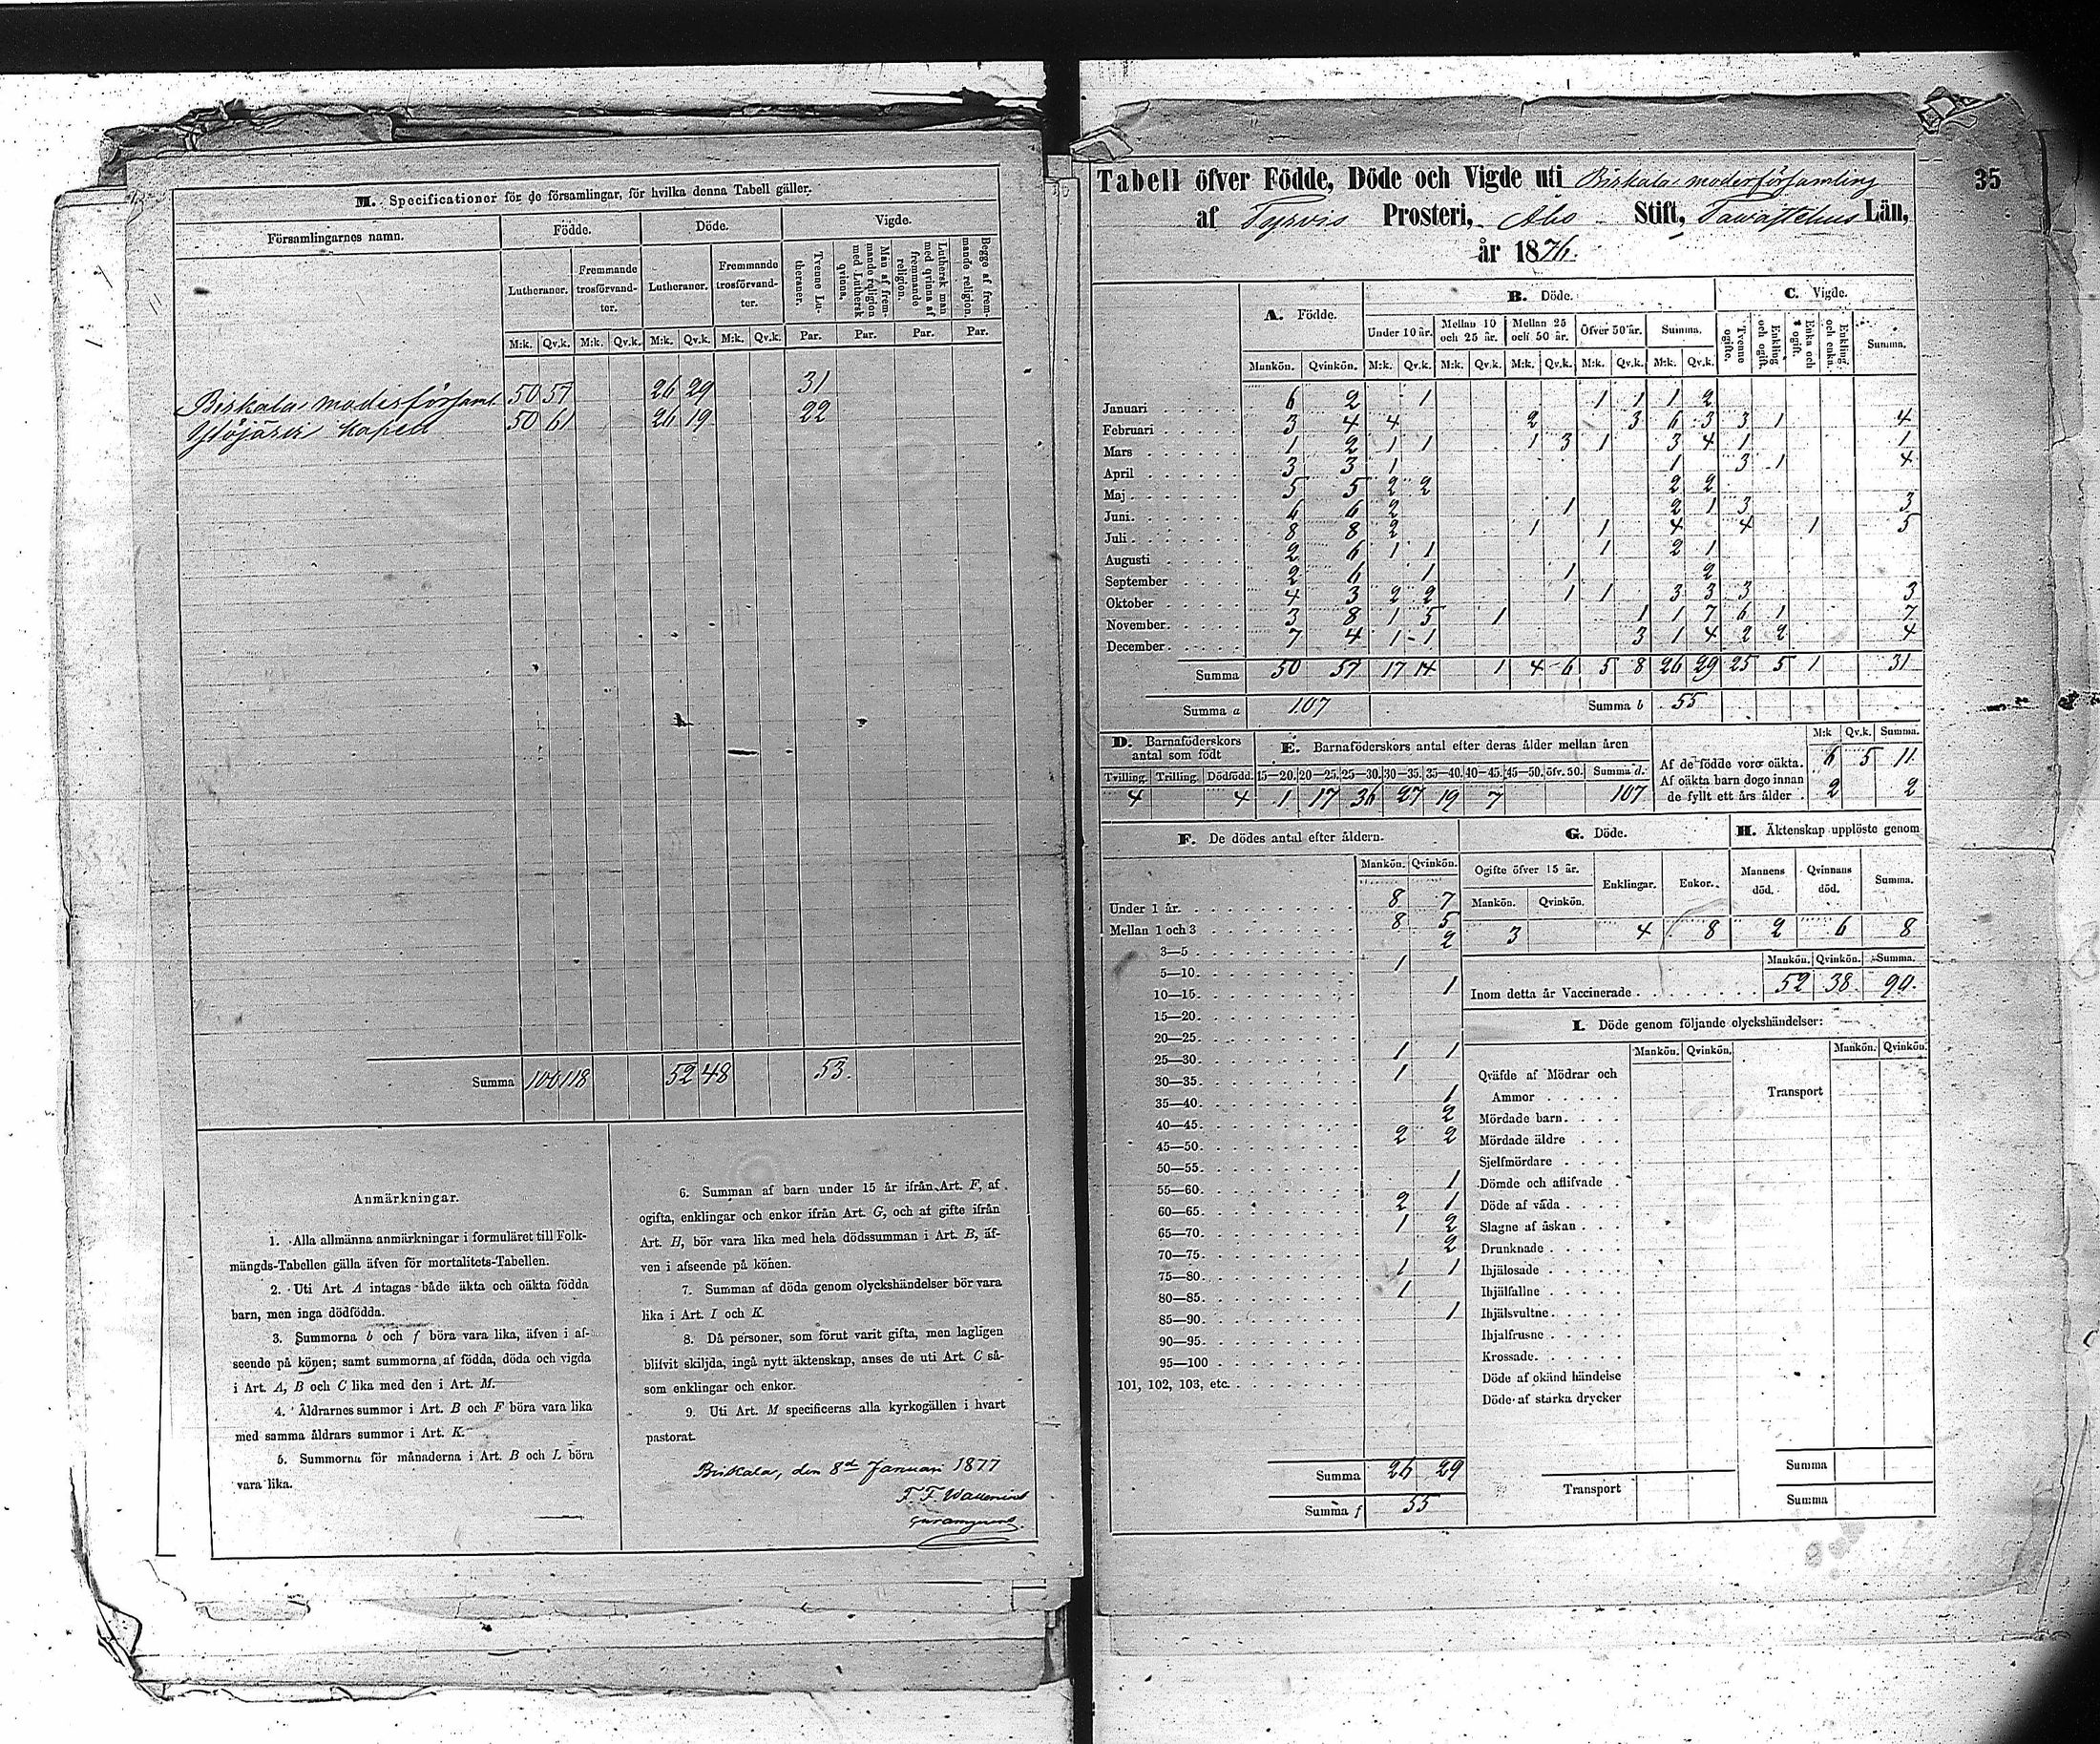 M. Specificationer för de församlingar, för hvilka denna Tabell gäller.
Församlingarnes namn. Födde. Döde. Vigde.
Lutheraner. Fremmande trosförvandter. Lutheraner. Fremmande trosförvandter. Tvenne Lutheraner. Man af fremmande religion med Luthersk qvinna. Luthersk man med qvinna af fremmande religion. Begge af fremmande religion.
M:k. Qv.k. M:k. Qv.k. M:k. Qv.k. M:k. Qv.k. Par. Par. Par. Par.
Birkala moderförsaml 50 57 26 29 31
Ylöjärvi kapell 50 61 26 19 22
Summa 100 118 52 48 53.
Anmärkningar.
1. Alla allmänna anmärkningar i formuläret till Folk-
mängds-Tabellen gälla äfven för mortalitets-Tabellen.
2. Uti Art. A intagas både äkta och oäkta födda
barn, men inga dödfödda.
3. Summorna b och f böra vara lika, äfven i af-
seende på könen; samt summorna af födda, döda och vigda
i Art. A, B och C lika med den i Art. M.
4. Åldrarnes summor i Art. B och F böra vara lika
med samma åldrars summor i Art. K.
5. Summorna för månaderna i Art. B och L böra
vara lika.
6. Summan af barn under 15 år ifrån Art. F, af
ogifta, enklingar och enkor ifrån Art. G, och af gifte ifrån
Art. H, bör vara lika med hela dödssumman i Art. B, äf-
ven i afseende på könen.
7. Summan af döda genom olyckshändelser bör vara
lika i Art. I och K.
8. Då personer, som förut varit gifta, men lagligen
blifvit skiljda, ingå nytt äktenskap, anses de uti Art. C så-
som enklingar och enkor.
9. Uti Art. M specificeras alla kyrkogällen i hvart
pastorat.
Birkala, den 8de Januari 1877
F. F. Wallenius
35
Tabell öfver Födde, Döde och Vigde uti Birkala moderförsamling
af Tyrvis Prosteri, Åbo Stift, Tawastehus Län,
år 1876.
A. Födde. B. Döde. C. Vigde.
Under 10 år. Mellan 10 och 25 år. Mellan 25 och 50 år. Öfver 50 år. Summa. Tvenne ogifte. Enkling och ogift. Enka och ogift. Enkling och enka. Summa.
Mankön. Qvinkön. M:k. Qv.k. M:k. Qv.k. M:k. Qv.k. M:k. Qv.k. M:k. Qv.k.
Januari 6 2 1 1 1 1 2
Februari 3 4 4 2 3 6 3 3 1 4
Mars 1 2 1 1 1 3 1 3 4 1 1
April 3 3 1 1 3 1 4
Maj 5 5 2 2 2 2
Juni 6 6 2 1 2 1 3 3
Juli 8 8 2 1 1 4 4 1 5
Augusti 2 6 1 1 1 2 1
September 2 6 1 1 2
Oktober 4 3 2 2 1 1 3 3 3 3
November 3 8 1 5 1 1 1 7 6 1 7
December 7 4 1 1 3 1 4 2 2 4
Summa 50 57 17 14 1 4 6 5 8 26 29 25 5 1 31
Summa a 107 Summa b 55
D. Barnaföderskors antal som födt E. Barnaföderskors antal efter deras ålder mellan åren
M:k Qv.k. Summa.
Tvilling. Trilling. Dödfödd. 15—20. 20—25. 25—30. 30—35. 35—40. 40—45. 45—50. öfv. 50. Summa d.
4 4 1 17 36 27 19 7 107
Af de födde voro oäkta. 6 5 11
Af oäkta barn dogo innan
de fyllt ett års ålder. 2 2
F. De dödes antal efter åldern.
Mankön. Qvinkön.
Under 1 år. 8 7
Mellan 1 och 3 8 5
3—5 2
5—10. 1
10—15. 1
15—20.
20—25.
25—30. 1 1
30—35. 1
35—40. 1
40—45. 2
45—50. 2 2
50—55.
55—60. 1
60—65. 2 1
65—70. 1 2
70—75. 2
75—80. 1 1
80—85. 1
85—90. 1
90—95.
95—100
101, 102, 103, etc.
Summa 26 29
Summa f 55
G. Döde.
Ogifte öfver 15 år. Enklingar. Enkor.
Mankön. Qvinkön.
3 4 8
H. Äktenskap upplöste genom
Mannens död. Qvinnans död. Summa.
2 6 8
Mankön. Qvinkön. Summa.
Inom detta år Vaccinerade 52 38 90.
I. Döde genom följande olyckshändelser:
Mankön. Qvinkön. Mankön. Qvinkön.
Qväfde af Mödrar och
Ammor
Transport
Mördade barn.
Mördade äldre
Sjelfmördare
Dömde och aflifvade
Döde af våda
Slagne af åskan
Drunknade
Ihjälosade
Ihjälfallne
Ihjälsvultne
Ihjälfrusne
Krossade.
Döde af okänd händelse
Döde af starka drycker
Summa
Transport
Summa